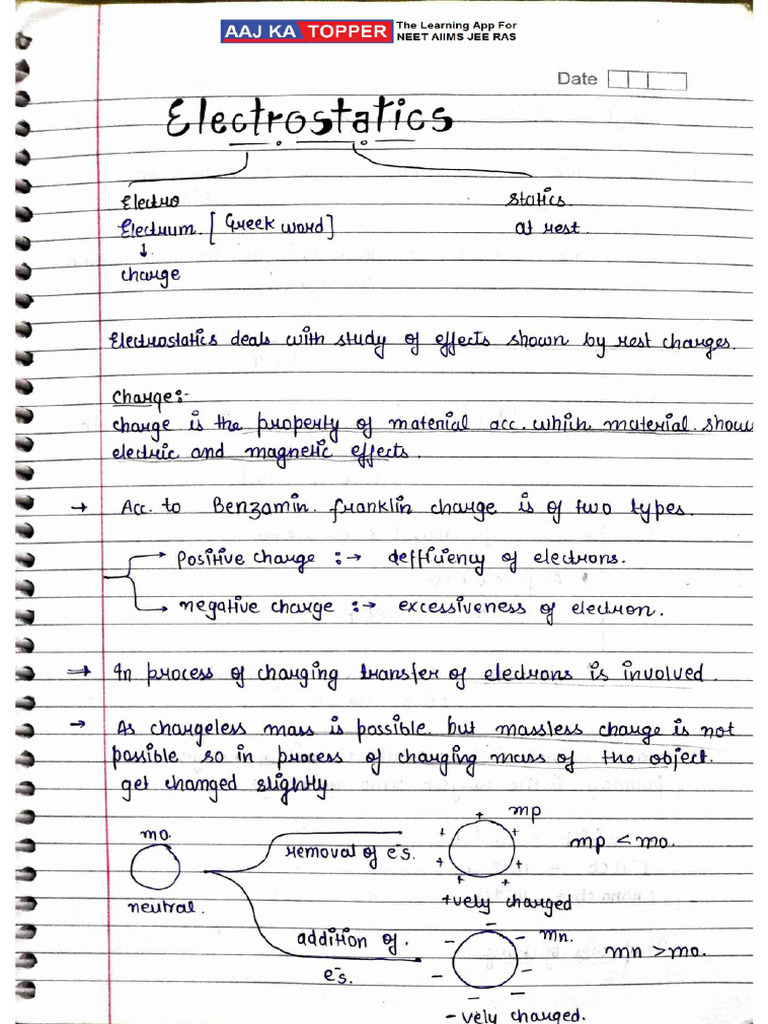 AAJ KA TOPPER The Learning App For
NEET AIIMS JEE RAS
Date
Electrostatics
Electro Statics
Electrum. [Greek word] at rest.
↓
charge
Electrostatics deals with study of effects shown by rest charges.
Charge:-
Charge is the property of material acc. which material show
electric and magnetic effects.
→ Acc. to Benzamin. franklin charge is of two types.
→ positive charge :→ defficiency of electrons.
→ negative charge :→ excessiveness of electron.
⇒ In process of charging transfer of electrons is involved.
→ As chargeless mass is possible but massless charge is not
possible so in process of charging mass of the object.
get changed slightly.
mo.
neutral.
removal of e⁻s.
+ + + + + + +
mp
mp < mo.
+vely charged
addition of.
e⁻s.
− − − − − −
mn.
mn > mo.
- vely charged.